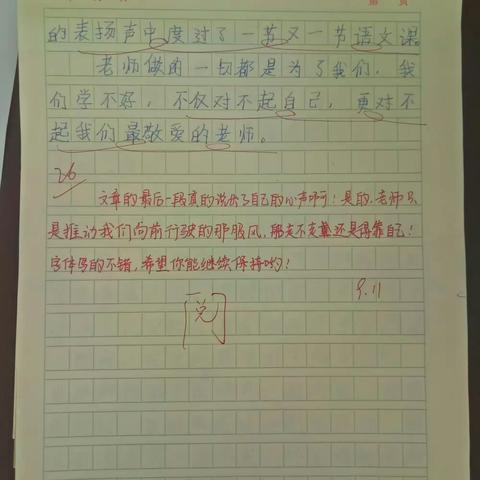 的表扬声中度过了一节又一节语文课。
老师做的一切都是为了我们，我
们学不好，不仅对不起自己，更对不
起我们最敬爱的老师。
26
文章的最后一段真的说出了自己的心声呀！是的，老师只
是推动我们向前行驶的那股风，那走不走或还是得靠自己！
字体写的不错，希望你能继续保持哟！
9.11
阅